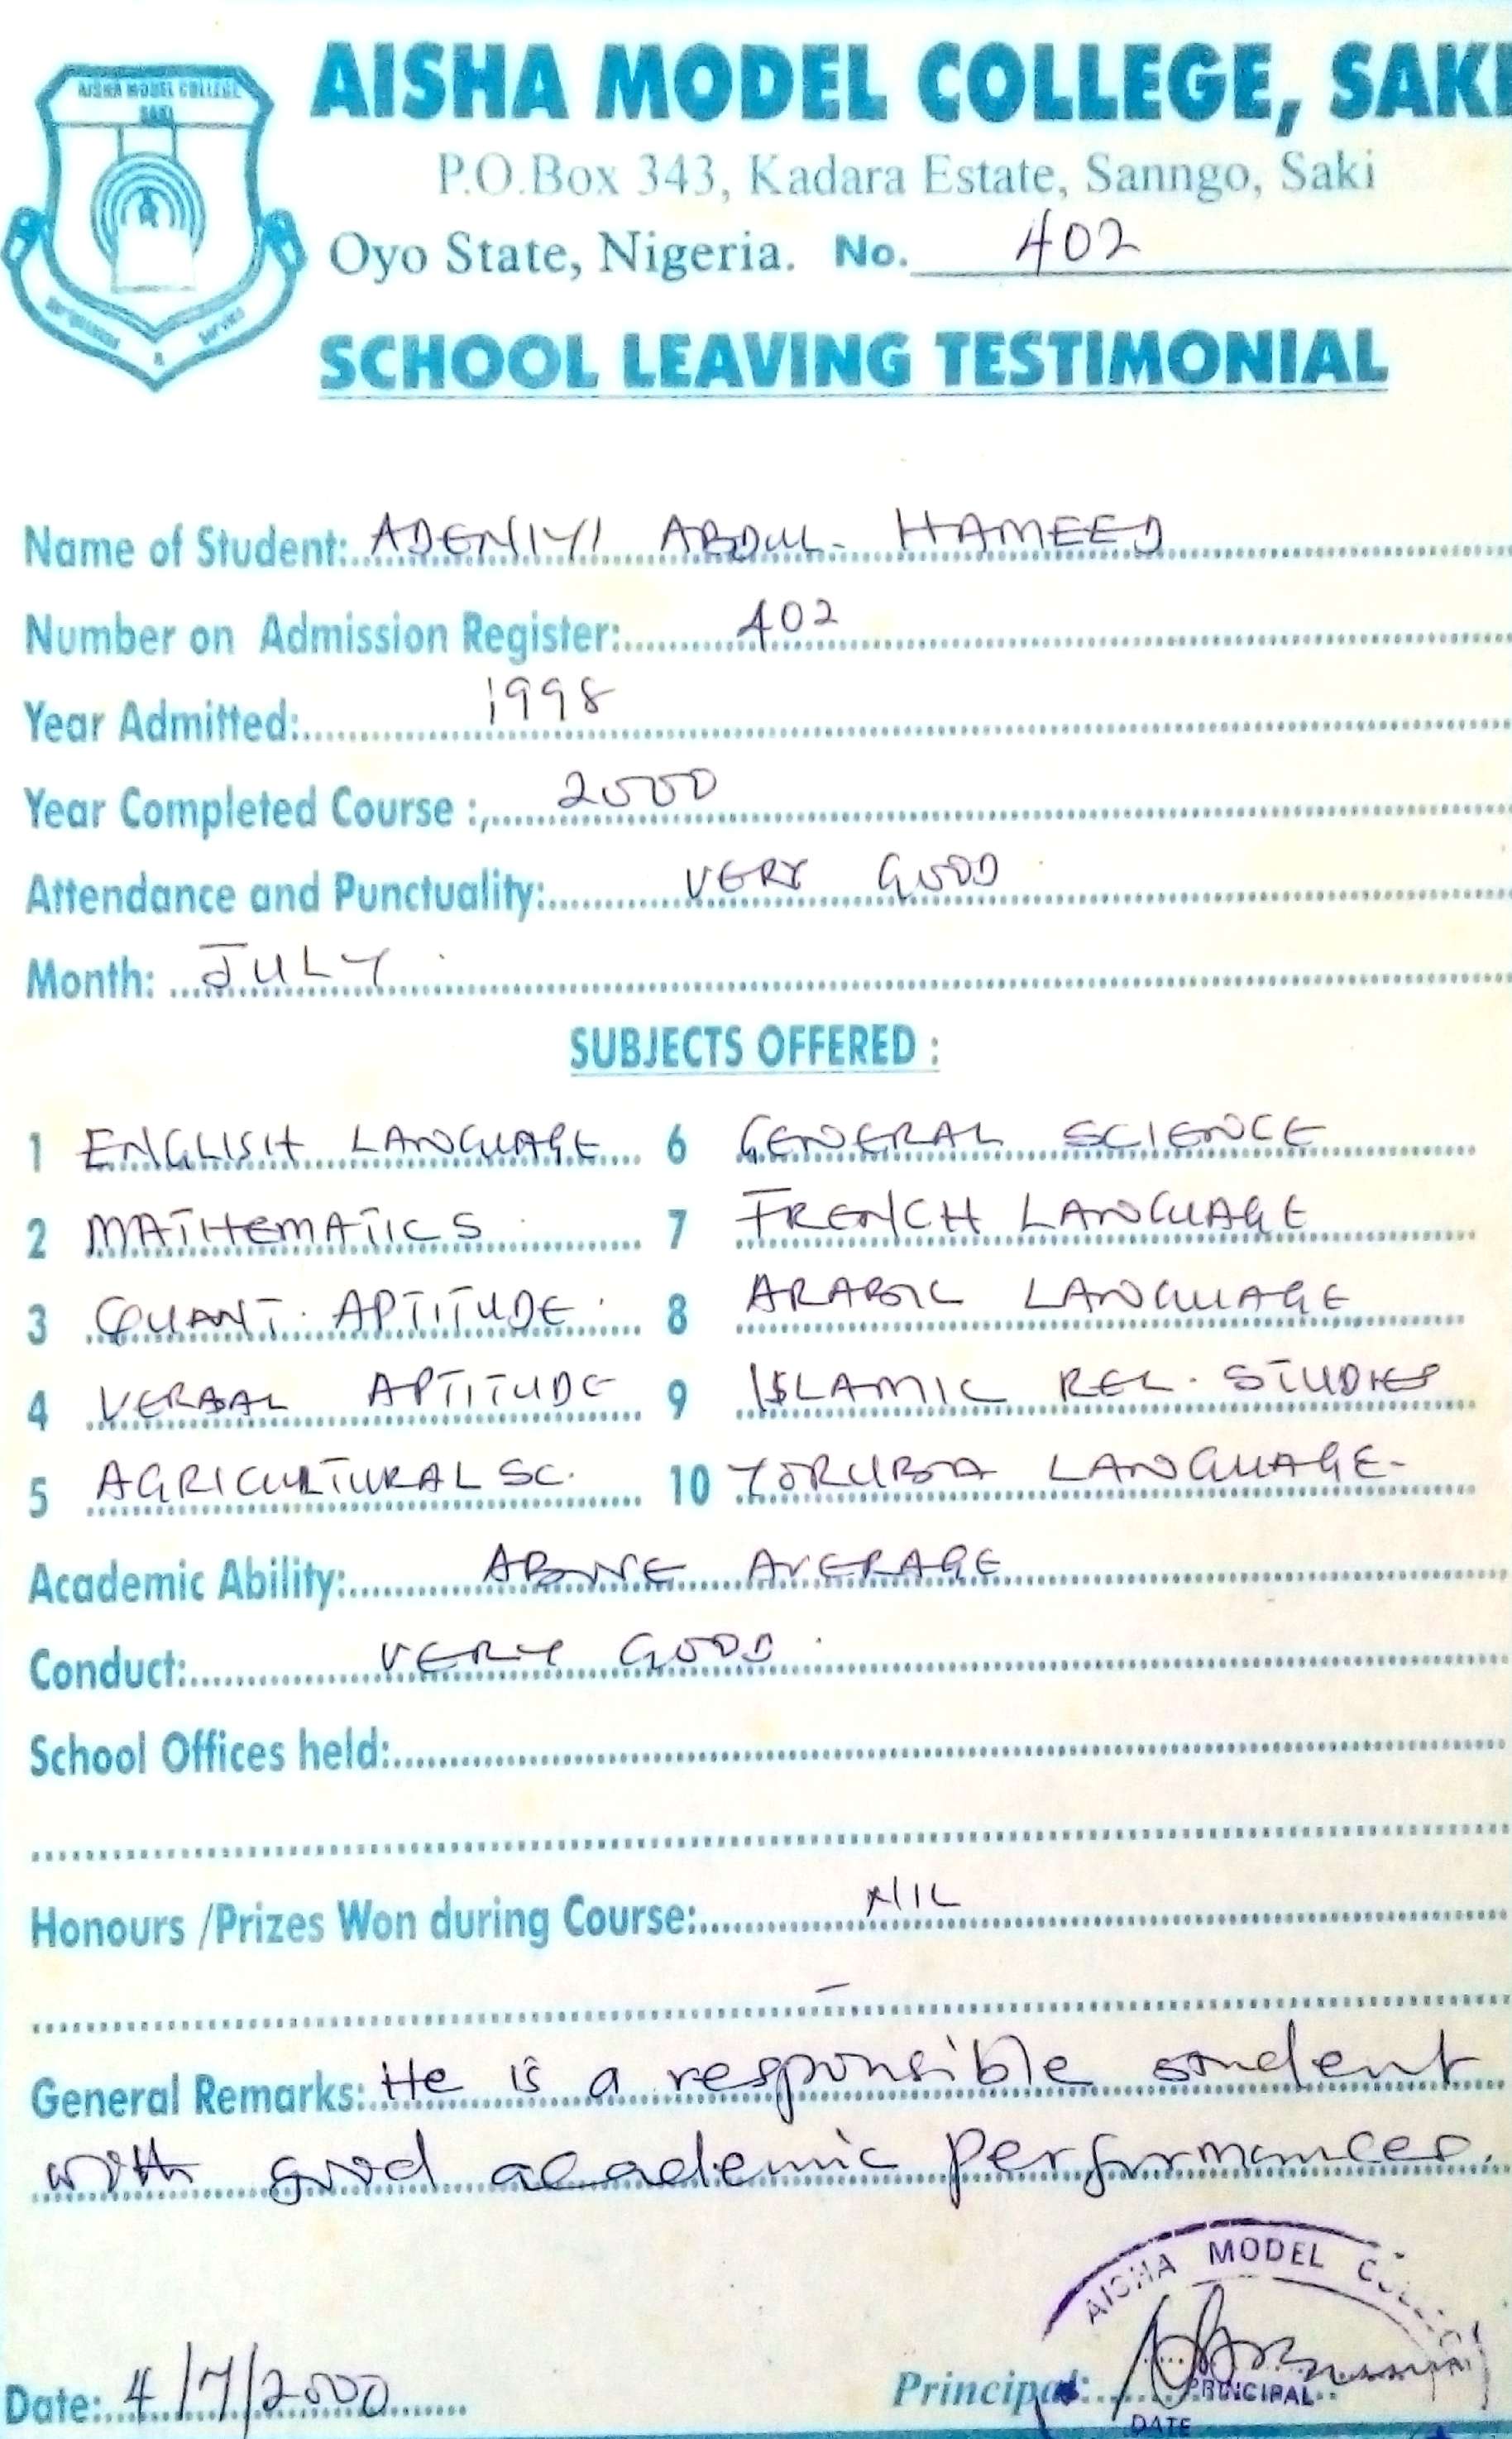 AISHA MODEL COLLEGE, SAKI
AISHA MODEL COLLEGE
SAKI
P.O.Box 343, Kadara Estate, Sanngo, Saki
Oyo State, Nigeria. No. 402
SCHOOL LEAVING TESTIMONIAL
Name of Student: ADENIYI ABDUL-HAMEED
Number on Admission Register: 402
Year Admitted: 1998
Year Completed Course :, 2000
Attendance and Punctuality: VERY GOOD
Month: JULY
SUBJECTS OFFERED :
1 ENGLISH LANGUAGE 6 GENERAL SCIENCE
2 MATHEMATICS 7 FRENCH LANGUAGE
3 QUANT. APTITUDE 8 ARABIC LANGUAGE
4 VERBAL APTITUDE 9 ISLAMIC REL. STUDIES
5 AGRICULTURAL SC. 10 YORUBA LANGUAGE
Academic Ability: ABOVE AVERAGE
Conduct: VERY GOOD
School Offices held:
Honours /Prizes Won during Course: NIL
General Remarks: He is a responsible student
with good academic performances.
AISHA MODEL COLLEGE
Date: 4/7/2000 Principal:
PRINCIPAL
DATE